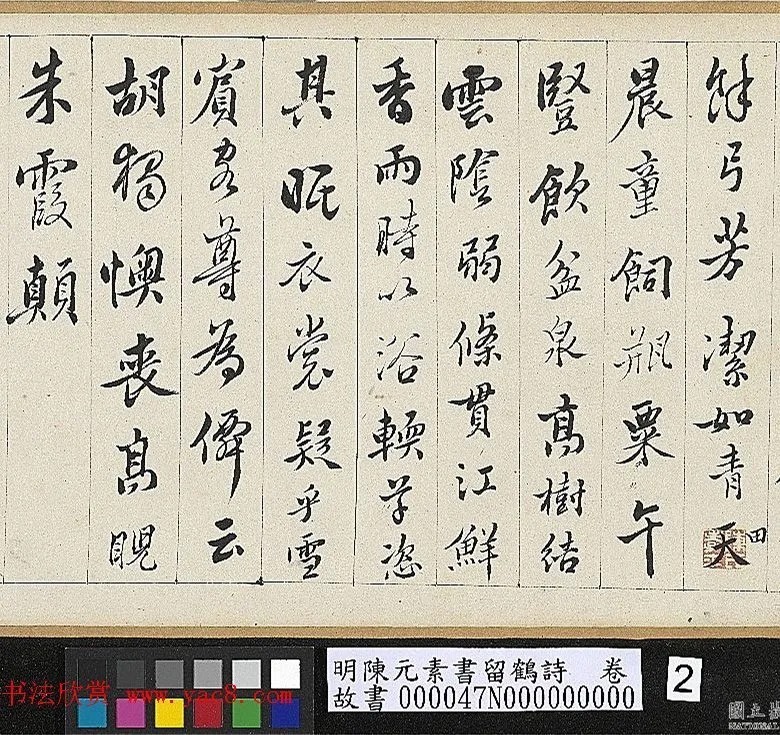 餘弓芳潔如青天田
晨童飼瓶粟午
豎飲盆泉高樹結
雲陰弱條貫江鮮
香雨時以浴輭草恣
其眠衣裳疑乎雪
賓客尊為僊云
胡獨懊喪高睨
朱霞顛
明陳元素書留鶴詩 卷
故書 000047N000000000
2
书法欣赏 www.yac8.com
國立